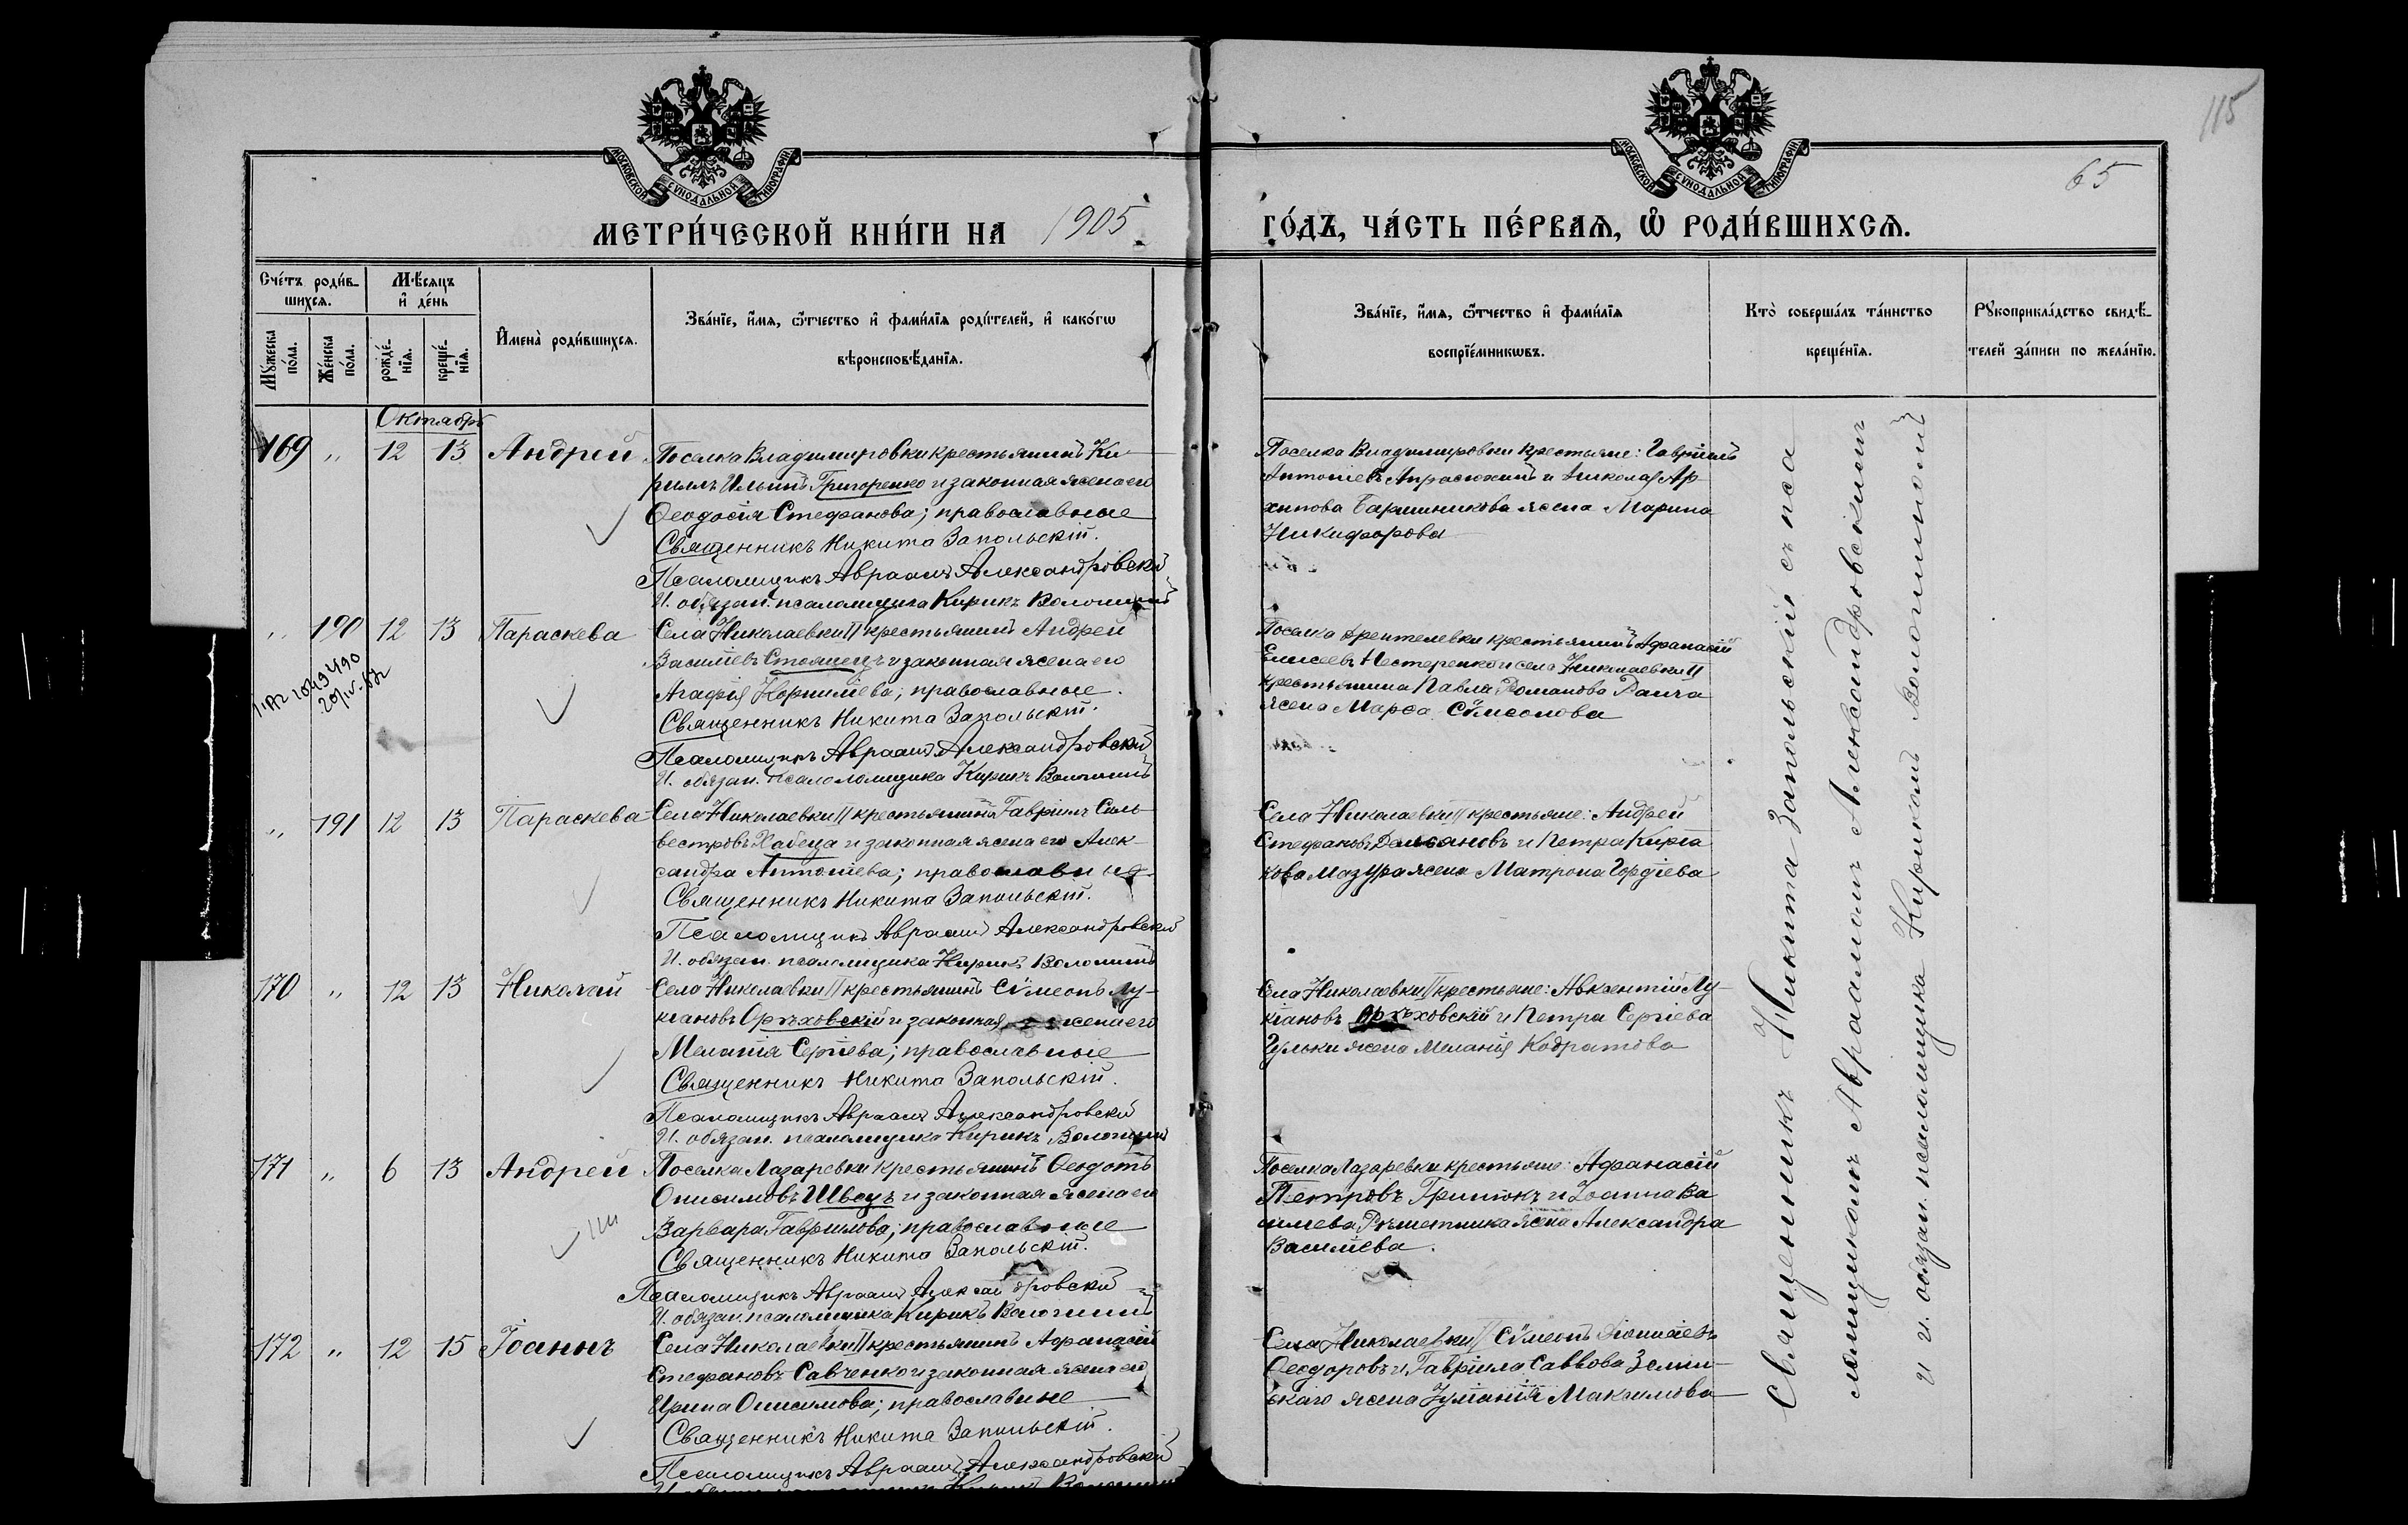 115
65
МОСКОВСКОЙ СѴНОДАЛЬНОЙ ТИПОГРАФІИ
МОСКОВСКОЙ СѴНОДАЛЬНОЙ ТИПОГРАФІИ
МЕТРИ́ЧЕСКОЙ КНИ́ГИ НА 1905 ГО́ДЪ, ЧА́СТЬ ПЕ́РВАѦ, Ѡ҆ РОДИ́ВШИХСѦ.
Сче́тъ роди́в-
шихсѧ.
Мѣ́сѧцъ
и҆ де́нь
Мꙋ́жеска
по́ла.
Же́нска
по́ла.
рожде́-
нїѧ.
креще́-
нїѧ.
И҆мена̀ роди́вшихсѧ.
Зва́нїе, и҆́мѧ, ѻ҆́тчество и҆ фами́лїѧ роди́телей, и҆ како́гѡ
вѣроисповѣ́данїѧ.
Зва́нїе, и҆́мѧ, ѻ҆́тчество и҆ фами́лїѧ
воспрїе́мникѡвъ.
Кто̀ соверша́лъ та́инство
креще́нїѧ.
Рꙋкоприкла́дство свидѣ́-
телей за́писи по жела́нїю.
Октябрь
169 " 12 13 Андрей
Поселка Владимировки крестьянинъ Ки-
риллъ Ильинъ Григоренко и законная жена его
Ѳеодосія Стефанова; православные
Священникъ Никита Запольскій.
Псаломщикъ Авраамъ Александровскій
И. обязан. псаломщика Кирикъ Волошинъ
Поселка Владимировки крестьяне: Гавріилъ
Антоніевъ и Николая Ар-
хипова жена Марина
Никифорова
" 190 12 13 Параскева
Села Николаевки II крестьянинъ Андрей
Василіевъ Стоянецъ и законная жена его
Агафія Корниліева; православные.
Священникъ Никита Запольскій.
Псаломщикъ Авраамъ Александровскій
И. обязан. псаломщика Кирикъ Волошинъ
Поселка крестьянинъ Афанасій
Елисеевъ Нестеренко и села Николаевки II
крестьянина Павла Романова
жена Марѳа Сѵмеонова
" 191 12 13 Параскева
Села Николаевки II крестьянинъ Гавріилъ Силь-
вестровъ Хабеца и законная жена его Алек-
сандра Антоніева; православные
Священникъ Никита Запольскій.
Псаломщикъ Авраамъ Александровскій
И. обязан. псаломщика Кирикъ Волошинъ
Села Николаевки II крестьяне: Андрей
Стефановъ и Петра Киріа-
кова Мазура жена Матрона Гордіева
170 " 12 13 Николай
Села Николаевки II крестьянинъ Сѵмеонъ Лу-
кіановъ Орѣховскій и законная жена его
Меланія Сергіева; православные
Священникъ Никита Запольскій.
Псаломщикъ Авраамъ Александровскій
И. обязан. псаломщика Кирикъ Волошинъ
Села Николаевки II крестьяне: Авксентій Лу-
кіановъ Орѣховскій и Петра Сергіева
Гульки жена Меланія Кодратова
171 " 6 13 Андрей
Поселка Лазаревки крестьянинъ Ѳеодотъ
Онисимовъ Швецъ и законная жена его
Варвара Гаврилова; православные
Священникъ Никита Запольскій.
Псаломщикъ Авраамъ Александровскій
И. обязан. псаломщика Кирикъ Волошинъ
Поселка Лазаревки крестьяне: Афанасій
Петровъ и Іоанна Ва-
силіева Рѣшетника жена Александра
Василіева.
172 " 12 15 Іоаннъ
Села Николаевки II крестьянинъ Афанасій
Стефановъ Савченко и законная жена его
Ирина Онисимова; православные
Священникъ Никита Запольскій.
Псаломщикъ Авраамъ Александровскій
Села Николаевки II Сѵмеонъ
Ѳеодоровъ и Гавріила Саввова
жена Іуліанія Максимова
Священникъ Никита Запольскій съ пса-
ломщикомъ Авраамомъ Александровскимъ
и и. обязан. псаломщика Кирикомъ Волошинымъ